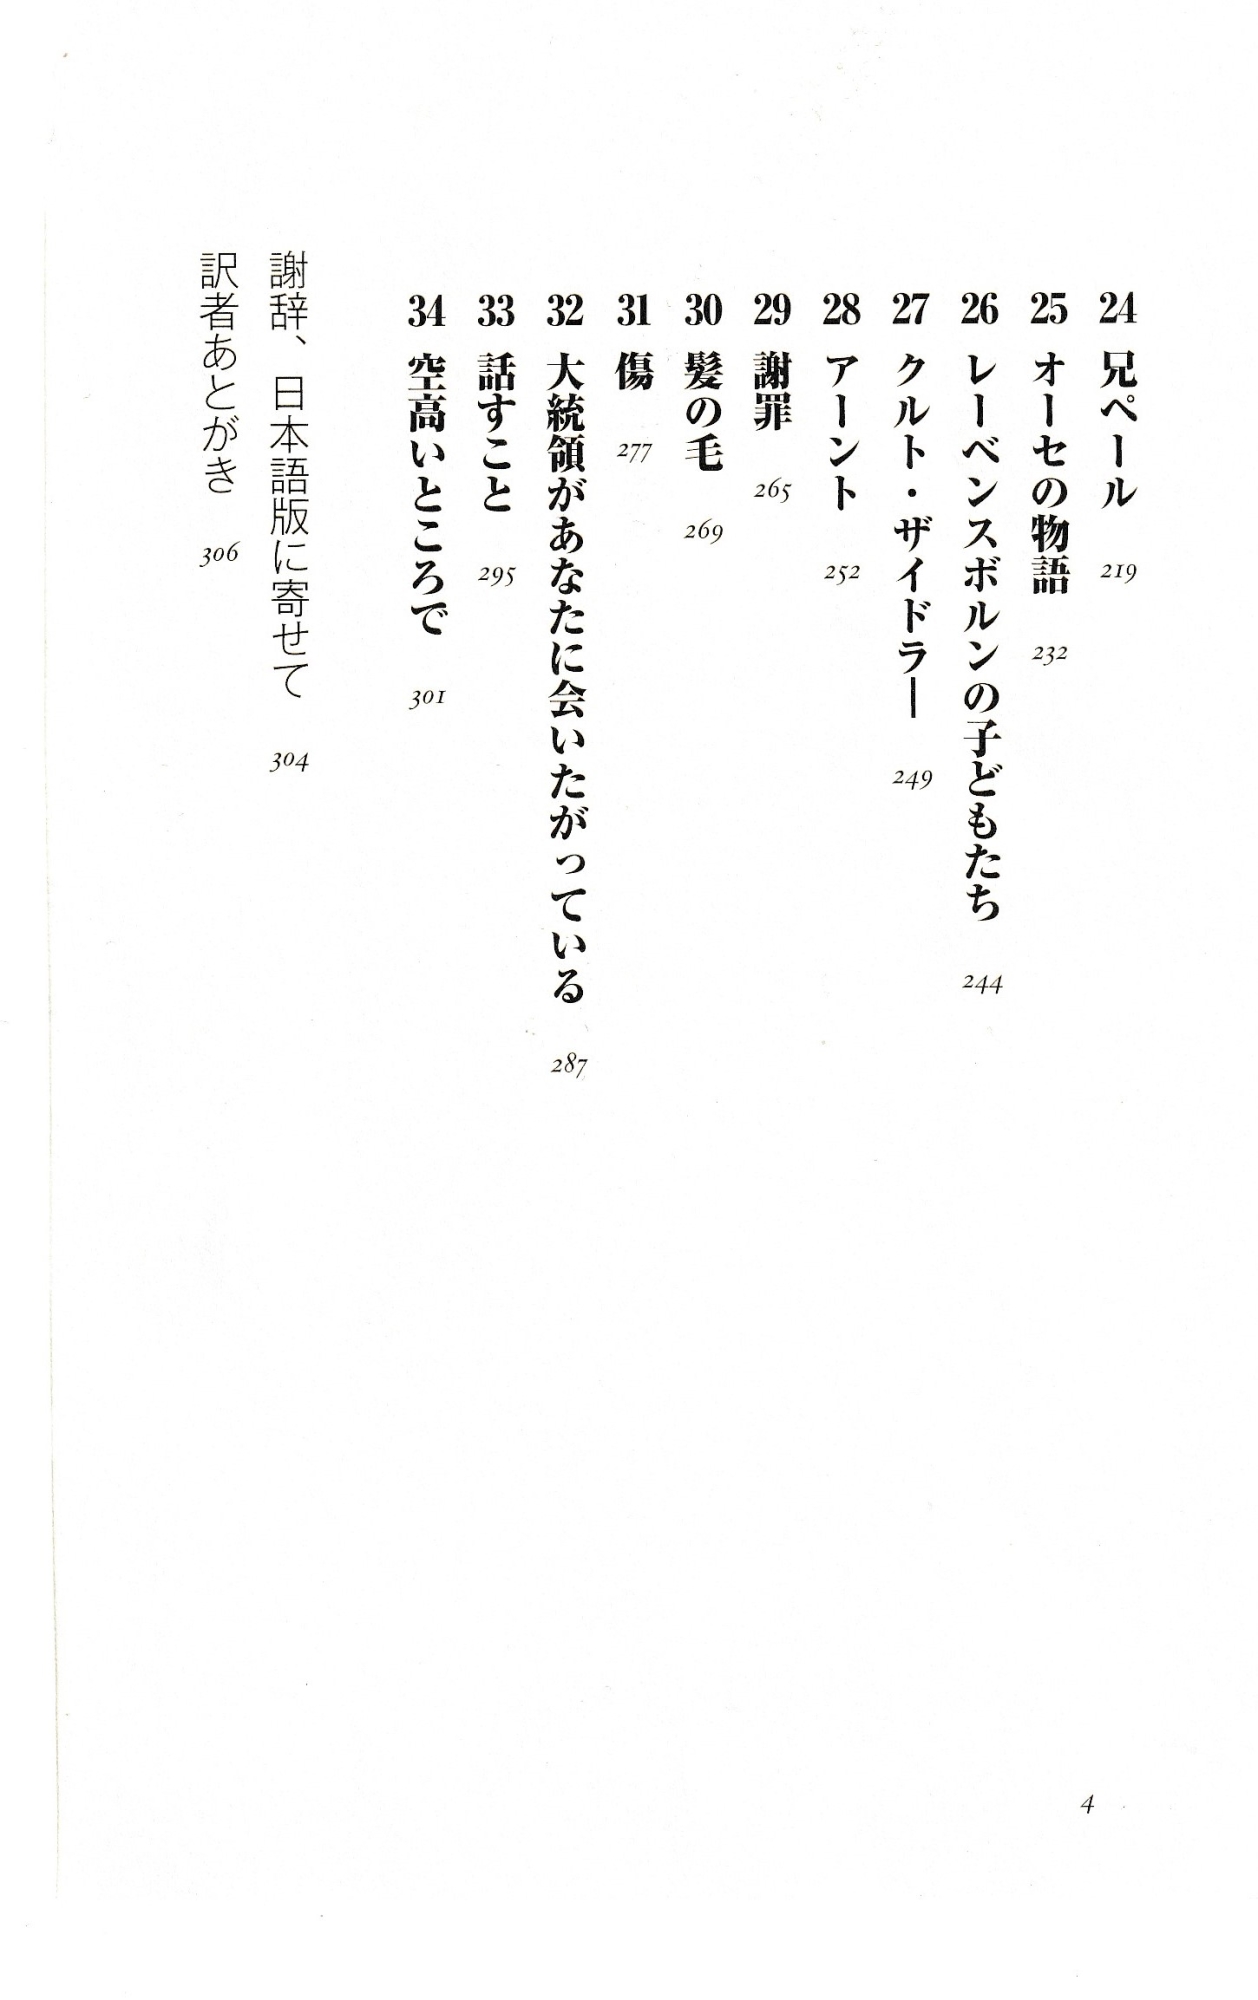 24 兄ペール 219
25 オーセの物語 232
26 レーベンスボルンの子どもたち 244
27 クルト・ザイドラー 249
28 アーント 252
29 謝罪 265
30 髪の毛 269
31 傷 277
32 大統領があなたに会いたがっている 287
33 話すこと 295
34 空高いところで 301
謝辞、日本語版に寄せて 304
訳者あとがき 306
4